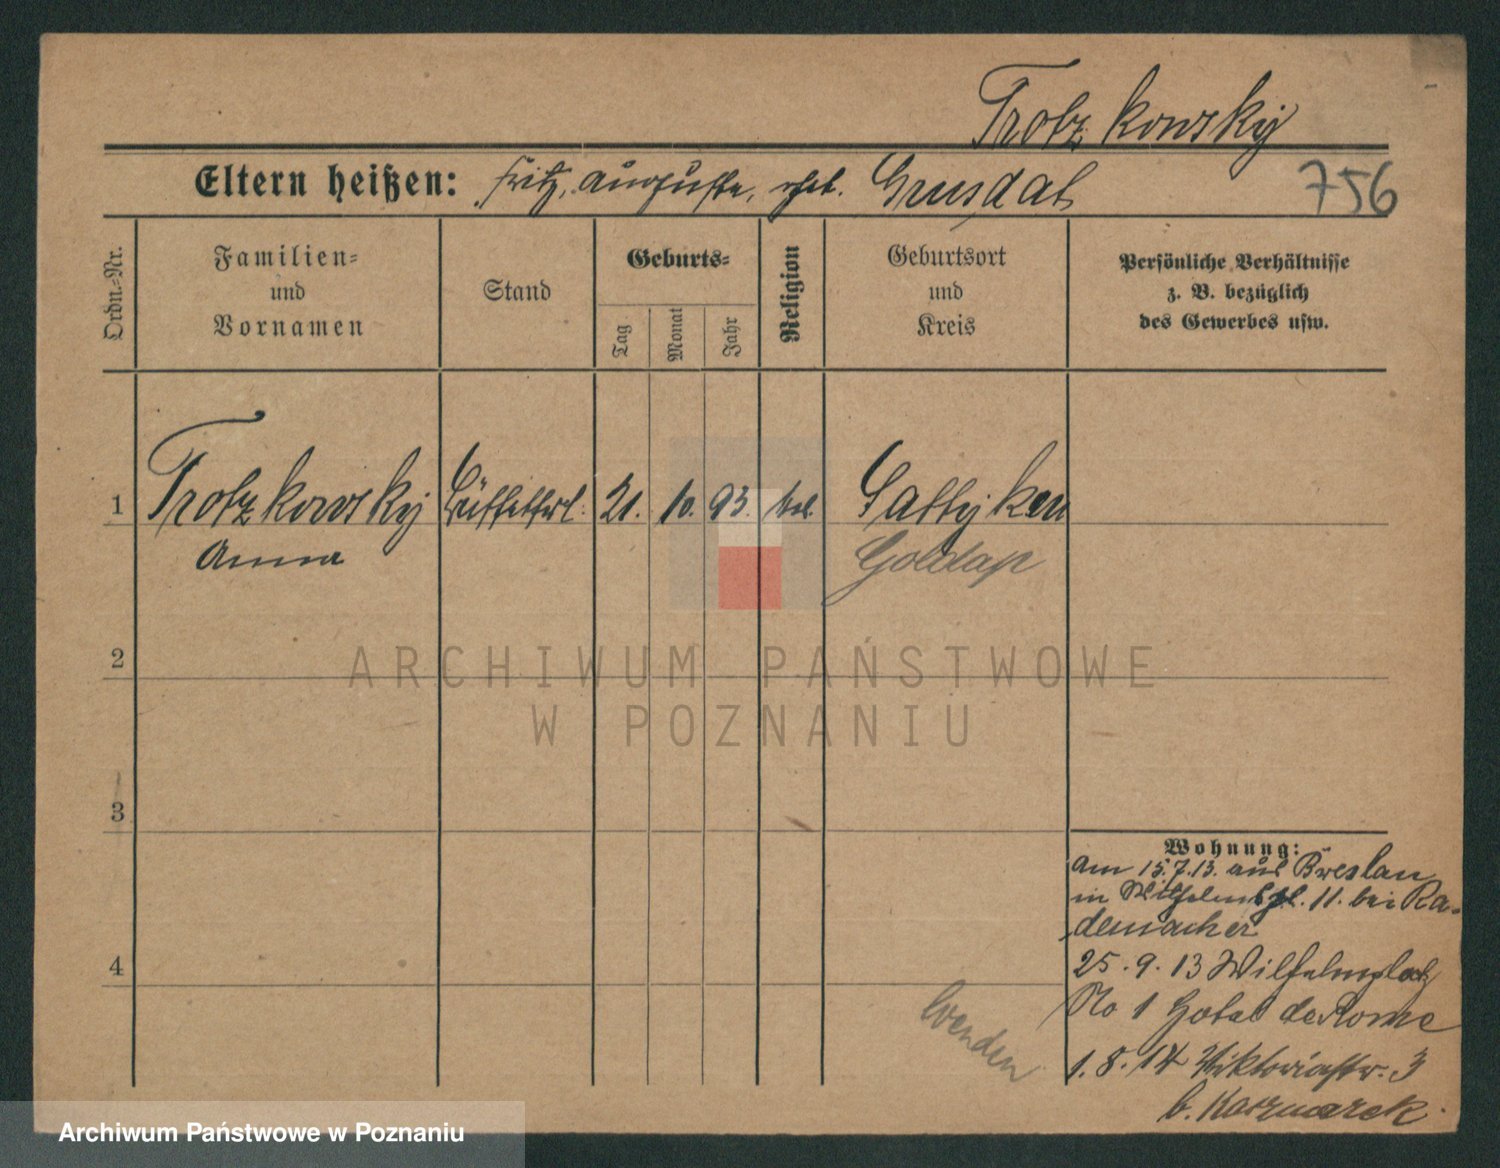 Trotzkowsky
Eltern heißen: Fritz, Auguste, geb. Grusdat
756
Ordn.-Nr.
Familien-
und
Vornamen
Stand
Geburts-
Tag
Monat
Jahr
Religion
Geburtsort
und
Kreis
Persönliche Verhältnisse
z. B. bezüglich
des Gewerbes usw.
1
Trotzkowsky
Anna
Büffettfrl.
21.
10.
93.
Gattyken
Goldap
2
ARCHIWUM PAŃSTWOWE
W POZNANIU
3
4
Wohnung:
am 15.7.13. aus Breslau
in Wilhelmspl. 11. bei Ra-
demacher
25.9.13 Wilhelmsplatz
No 1 Hotel de Rome
1.8.14 Viktoriastr. 3
b. Kaczmarek.
Wenden
Archiwum Państwowe w Poznaniu